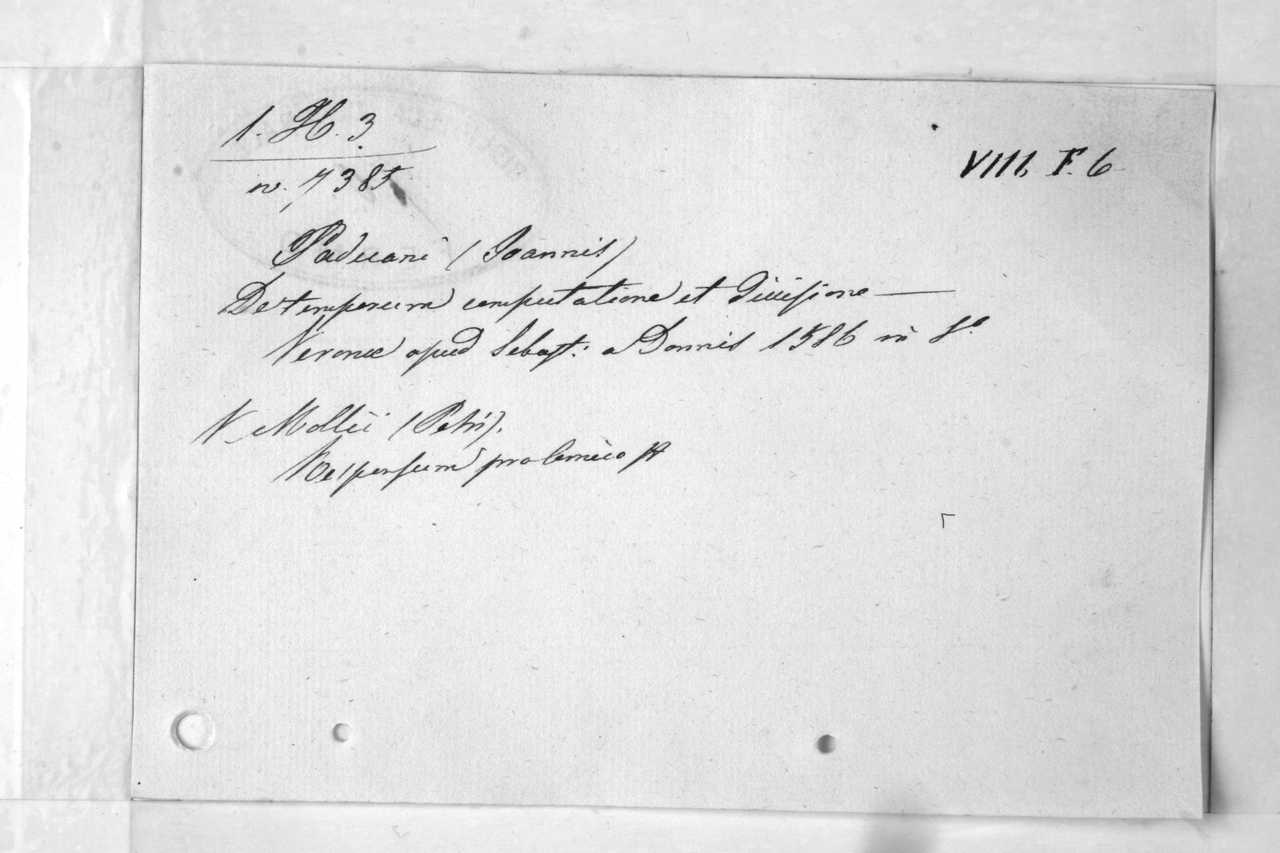 1. H. 3.
n. 7385
VIII. F. 6
Paduani (Joannis)
De temporum computatione et divisione —
Veronæ apud Sebast: a Donnis 1586 in 8º
V. Mollii (Petri).
Responsum pro Cimico